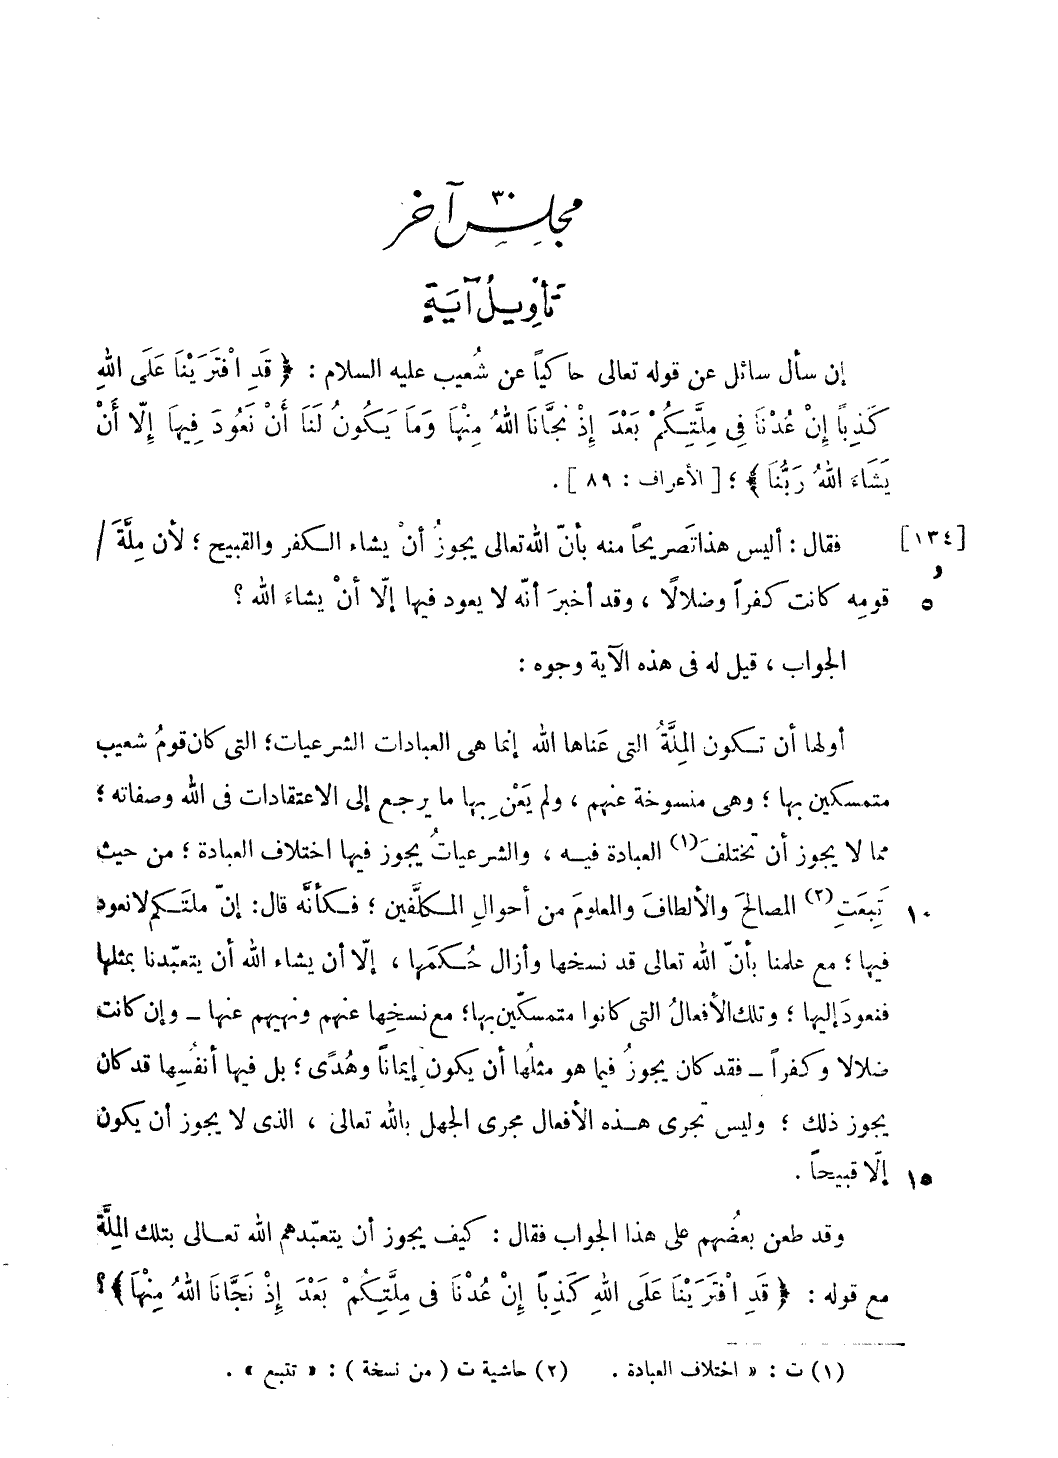 ٣٠
مجلس آخر
تأويلُ آيَةٍ
إن سأل سائل عن قوله تعالى حاكياً عن شُعيب عليه السلام : ﴿ قَدِ افْتَرَيْنَا عَلَى اللهِ
كَذِباً إِنْ عُدْنَا فِى مِلَّتِكُمْ بَعْدَ إِذْ نَجَّانَا اللهُ مِنْهَا وَمَا يَكُونُ لَنَا أَنْ نَعُودَ فِيهَا إِلّا أَنْ
يَشَاءَ اللهُ رَبُّنَا ﴾ ؛ [ الأعراف : ٨٩ ] .
[١٣٤] فقال : أليس هذا تَصريحاً منه بأنّ الله تعالى يجوزُ أنْ يشاء الكفر والقبيح ؛ لأن مِلَّةَ /
و
٥ قومِه كانت كفراً وضلالًا ، وقد أخبرَ أنّه لا يعود فيها إلّا أنْ يشاءَ الله ؟
الجواب ، قيل له فى هذه الآية وجوه :
أولها أن تكون المِلَّةُ التى عَناها الله إنما هى العبادات الشرعيات؛ التى كان قومُ شعيب
متمسكين بها ؛ وهى منسوخة عنهم ، ولم يَعْنِ بها ما يرجع إلى الاعتقادات فى الله وصفاته ؛
مما لا يجوز أن تختلفَ(١) العبادة فيه ، والشرعياتُ يجوز فيها اختلاف العبادة ؛ من حيث
١٠ تَبِعَتِ(٢) المصالحَ والألطافَ والمعلومَ من أحوالِ المكلَّفين ؛ فكأنَّه قال: إنّ ملتَكم لا نعود
فيها ؛ مع علمنا بأنّ الله تعالى قد نسخها وأزال حُكمَها ، إلّا أن يشاء الله أن يتعبّدنا بمثلها
فنعودَ إليها ؛ وتلك الأفعالُ التى كانوا متمسكّين بها؛ مع نسخِها عنهم ونهيهم عنها – وإن كانت
ضلالا وكفراً – فقد كان يجوزُ فيما هو مثلُها أن يكون إيماناً وهُدًى ؛ بل فيها أنفُسِها قد كان
يجوز ذلك ؛ وليس تجرى هذه الأفعال مجرى الجهل بالله تعالى ، الذى لا يجوز أن يكون
١٥ إلّا قبيحاً .
وقد طعن بعضُهم على هذا الجواب فقال : كيف يجوز أن يتعبّدهم الله تعالى بتلك المِلَّة
مع قوله : ﴿ قَدِ افْتَرَيْنَا عَلَى اللهِ كَذِباً إِنْ عُدْنَا فى مِلَّتِكُمْ بَعْدَ إِذْ نَجَّانَا اللهُ مِنْهَا ﴾؟
(١) ت : « اختلاف العبادة . (٢) حاشية ت ( من نسخة ) : « تتبع » .